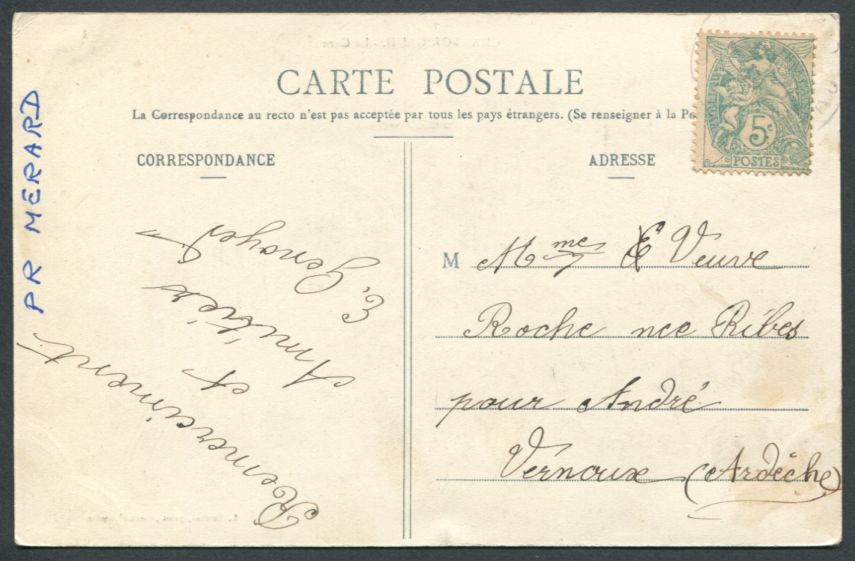 CARTE POSTALE
La Correspondance au recto n'est pas acceptée par tous les pays étrangers. (Se renseigner à la Po
CORRESPONDANCE
ADRESSE
5c
POSTES
PR MERARD
Remerciment
et
Amitiés
E.
M Mme Veuve
Roche nee Ribes
pour André
Vernoux (Ardèche)